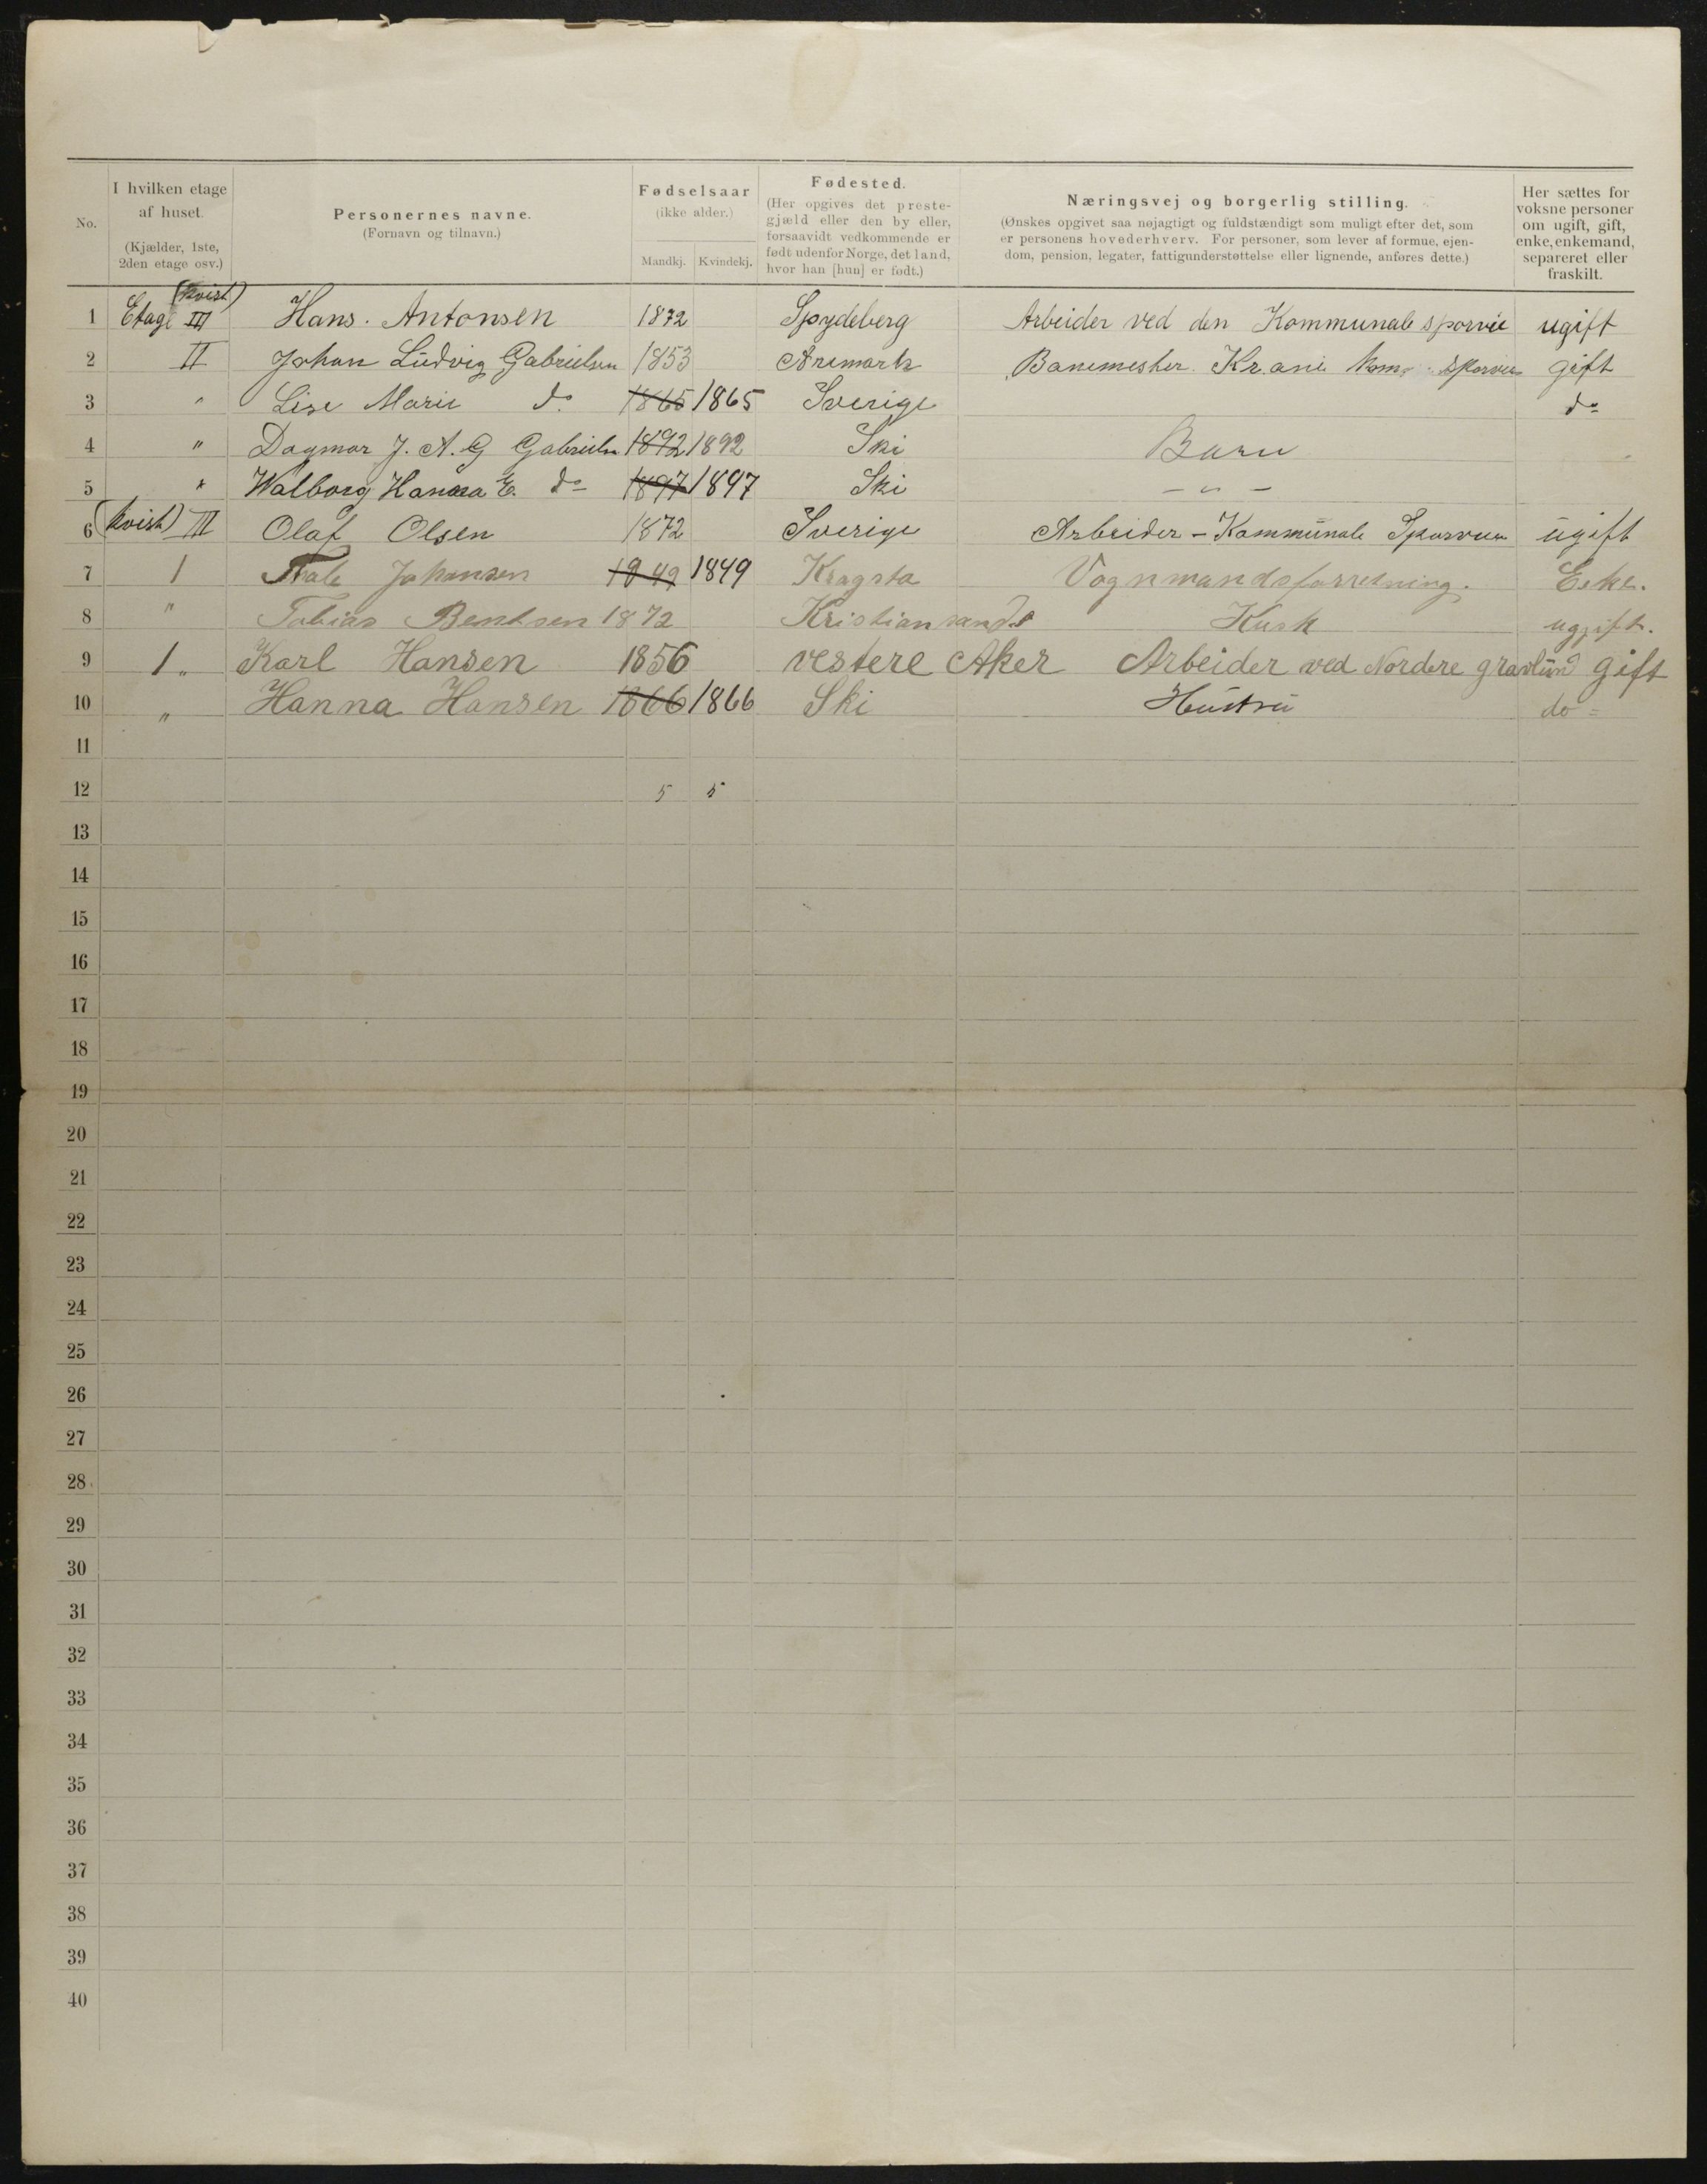 No.
I hvilken etage af huset. (Kjælder, 1ste, 2den etage osv.)
Personernes navne. (Fornavn og tilnavn.)
Fødselsaar (ikke alder.) Mandkj. Kvindekj.
Fødested. (Her opgives det prestegjæld eller den by eller, forsaavidt vedkommende er født udenfor Norge, det land, hvor han [hun] er født.)
Næringsvej og borgerlig stilling. (Ønskes opgivet saa nøjagtigt og fuldstændigt som muligt efter det, som er personens hovederhverv. For personer, som lever af formue, ejendom, pension, legater, fattigunderstøttelse eller lignende, anføres dette.)
Her sættes for voksne personer om ugift, gift, enke, enkemand, separeret eller fraskilt.
1 Etage III (kvist) Hans. Antonsen 1872 Spydeberg Arbeider ved den Kommunale sporvie ugift
2 II Johan Ludvig Gabrielsen 1853 Aremark Banemester Kr.ania kom. Sporvei gift
3 " Lise Marie do 1865 1865 Sverige do
4 " Dagmar J. A. G Gabrielsen 1892 1892 Ski Barn
5 " Walborg Hanna E. do 1897 1897 Ski - " -
6 (kvist) III Olaf Olsen 1872 Sverige Arbeider - Kommunale Sporveie ugift
7 1 Thale Johansen 1849 1849 Kragstø Vognmandsforretning. Enke.
8 " Tobias Bentsen 1872 Kristiansands Kusk uggift.
9 1 " Karl Hansen 1856 vestere Aker Arbeider ved Nordere gravlund gift
10 " Hanna Hansen 1866 1866 Ski Hustru do =
11
12 5 5
13
14
15
16
17
18
19
20
21
22
23
24
25
26
27
28
29
30
31
32
33
34
35
36
37
38
39
40